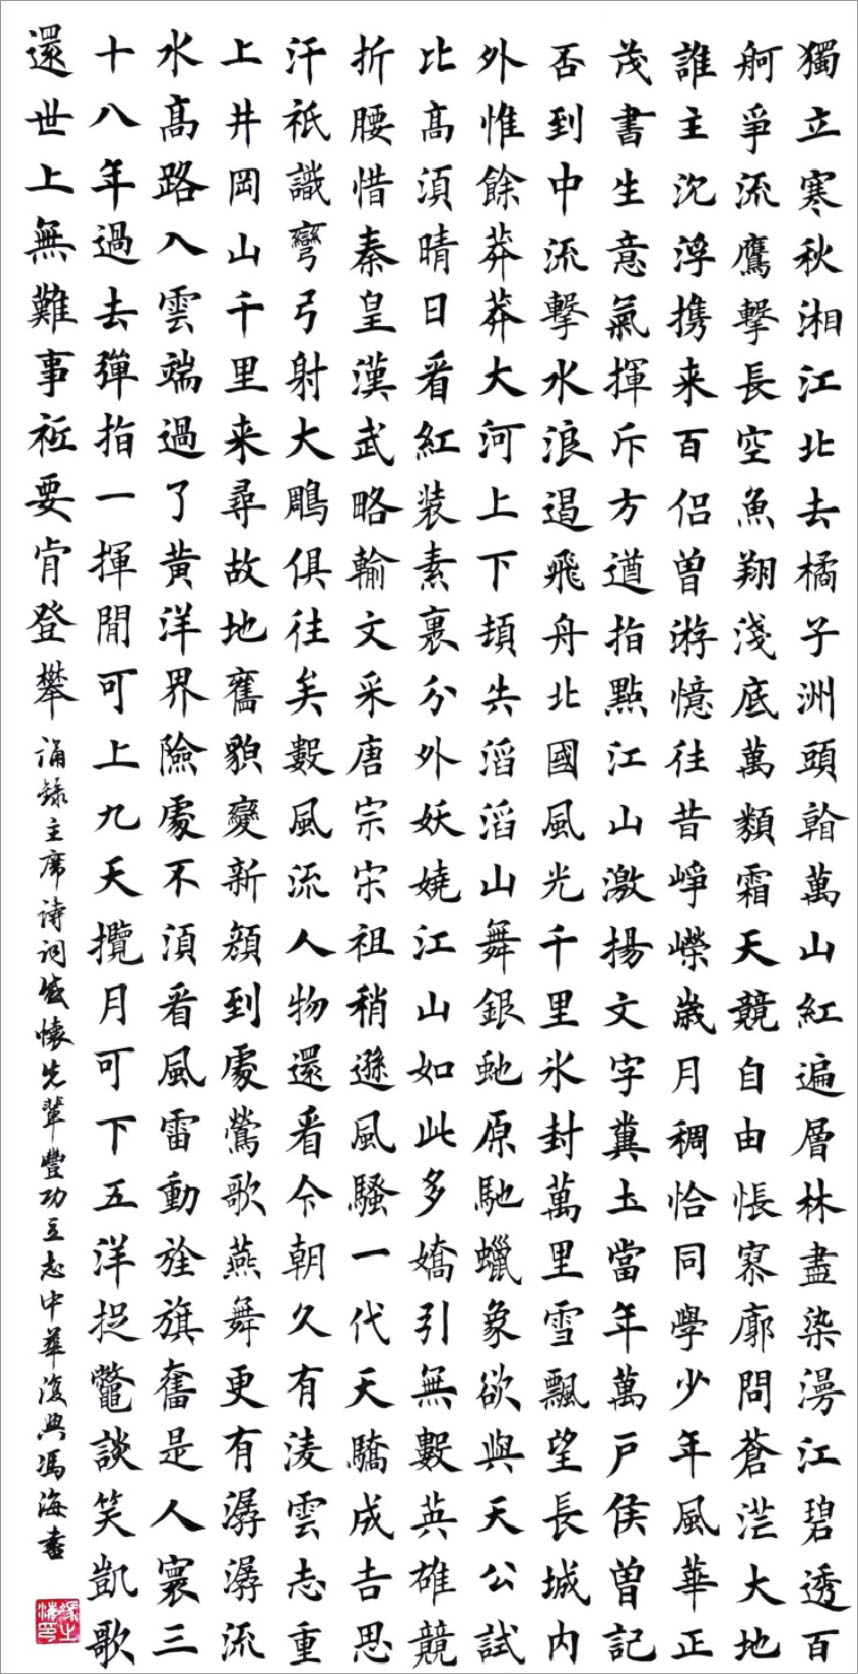 獨立寒秋湘江北去橘子洲頭看萬山紅遍層林盡染漫江碧透百
舸爭流鷹擊長空魚翔淺底萬類霜天競自由悵寥廓問蒼茫大地
誰主沉浮携来百侣曾游憶往昔崢嶸歲月稠恰同學少年風華正
茂書生意氣揮斥方遒指點江山激揚文字糞土當年萬戶侯曾記
否到中流擊水浪遏飛舟北國風光千里氷封萬里雪飄望長城内
外惟餘莽莽大河上下頓失滔滔山舞銀虵原馳蠟象欲與天公試
比髙須晴日看紅装素裹分外妖嬈江山如此多嬌引無數英雄競
折腰惜秦皇漢武略輸文采唐宗宋祖稍遜風騷一代天驕成吉思
汗衹識彎弓射大鵰俱往矣數風流人物還看今朝久有凌雲志重
上井岡山千里来尋故地舊貌變新顔到處鶯歌燕舞更有潺潺流
水髙路入雲端過了黄洋界險處不須看風雷動旌旗奮是人寰三
十八年過去彈指一揮間可上九天攬月可下五洋捉鱉談笑凱歌
還世上無難事衹要肯登攀
誦錄主席詩詞感懷先輩豐功立志中華復興馮海書
馮海之印